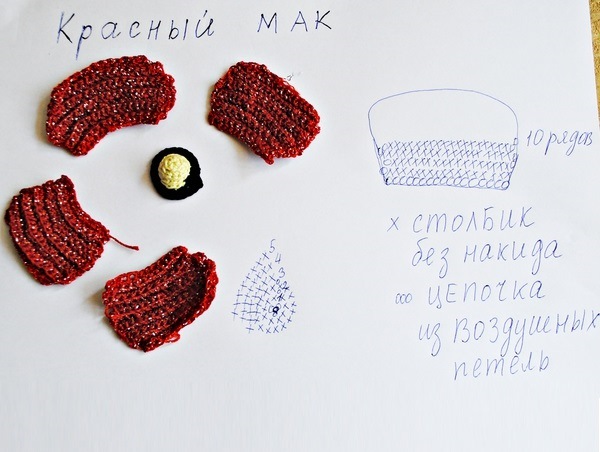 Красный МАК
10 рядов
5
4
3
2
1
x столбик
без накида
ооо цепочка
из воздушных
петель